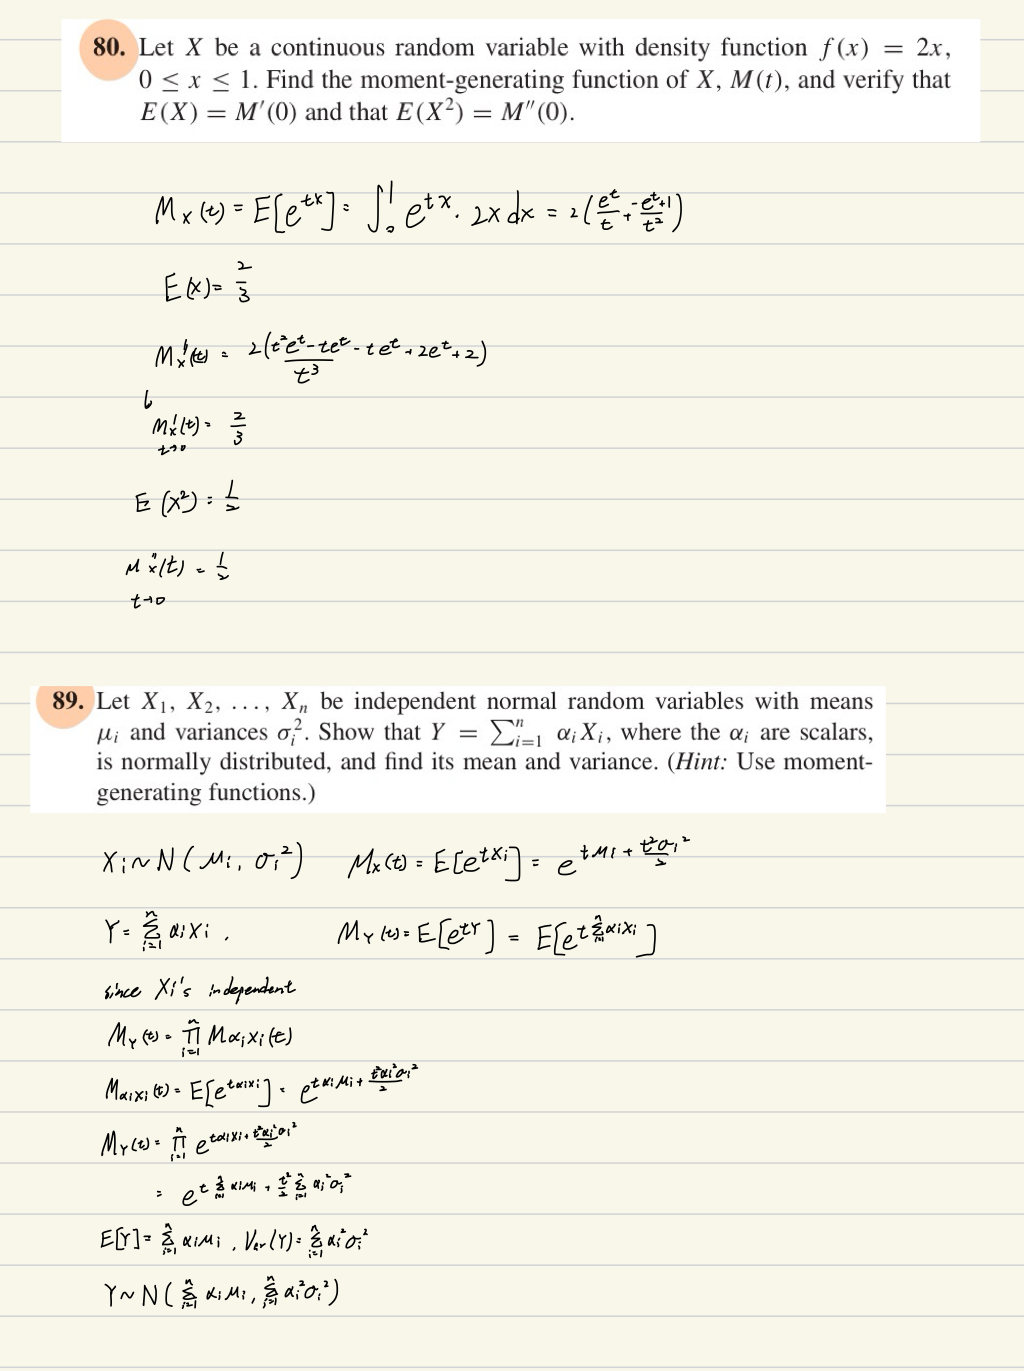 80. Let X be a continuous random variable with density function f(x) = 2x,
0 ≤ x ≤ 1. Find the moment-generating function of X, M(t), and verify that
E(X) = M′(0) and that E(X²) = M″(0).
Mx(t) = E[e^{tx}] = ∫₀¹ e^{tx} · 2x dx = 2(e^t/t + (-e^t+1)/t²)
E(x) = 2/3
Mx'(t) = 2(t²e^t - te^t - te^t + 2e^t + 2)/t³
Mx'(t) = 2/3
t→0
E(x²) = 1/2
Mx''(t) = 1/2
t→0
89. Let X₁, X₂, ..., Xₙ be independent normal random variables with means
μᵢ and variances σᵢ². Show that Y = ∑ⁿᵢ₌₁ αᵢXᵢ, where the αᵢ are scalars,
is normally distributed, and find its mean and variance. (Hint: Use moment-
generating functions.)
Xi ~ N(μi, σi²) Mx(t) = E[e^{tXi}] = e^{tμi + t²σi²/2}
Y = ∑ⁿᵢ₌₁ αiXi, MY(t) = E[e^{tY}] = E[e^{t∑ⁿᵢ₌₁αiXi}]
since Xi's independent
MY(t) = ∏ⁿᵢ₌₁ Mαixi(t)
Mαixi(t) = E[e^{tαixi}] = e^{tαiμi + t²αi²σi²/2}
MY(t) = ∏ⁿᵢ₌₁ e^{tαiXi + t²αi²σi²/2}
= e^{t∑ⁿᵢ₌₁αiμi + t²/2 ∑ⁿᵢ₌₁αi²σi²}
E[Y] = ∑ⁿᵢ₌₁ αiμi, Var(Y) = ∑ⁿᵢ₌₁ αi²σi²
Y ~ N(∑ⁿᵢ₌₁ αiμi, ∑ⁿᵢ₌₁ αi²σi²)